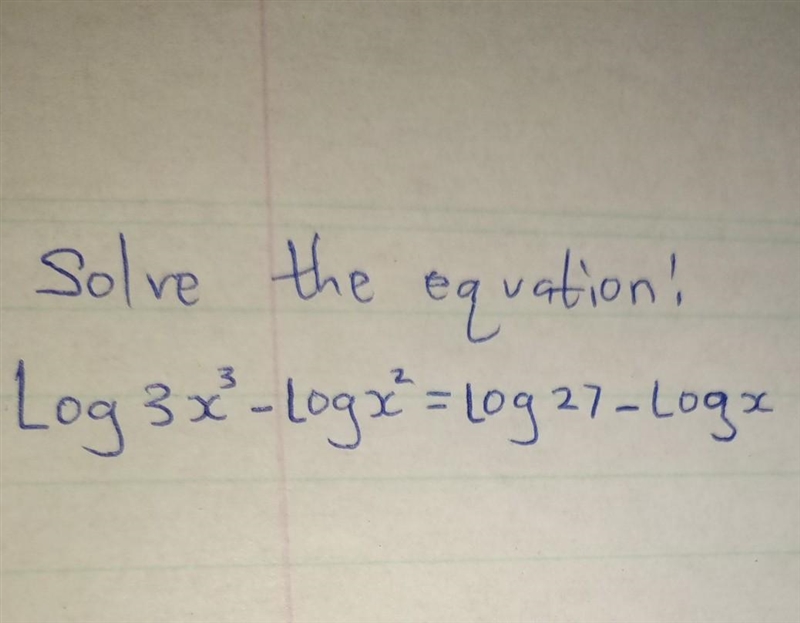 Solve the equation!
Log 3x³ - Log x² = Log 27 - Log x